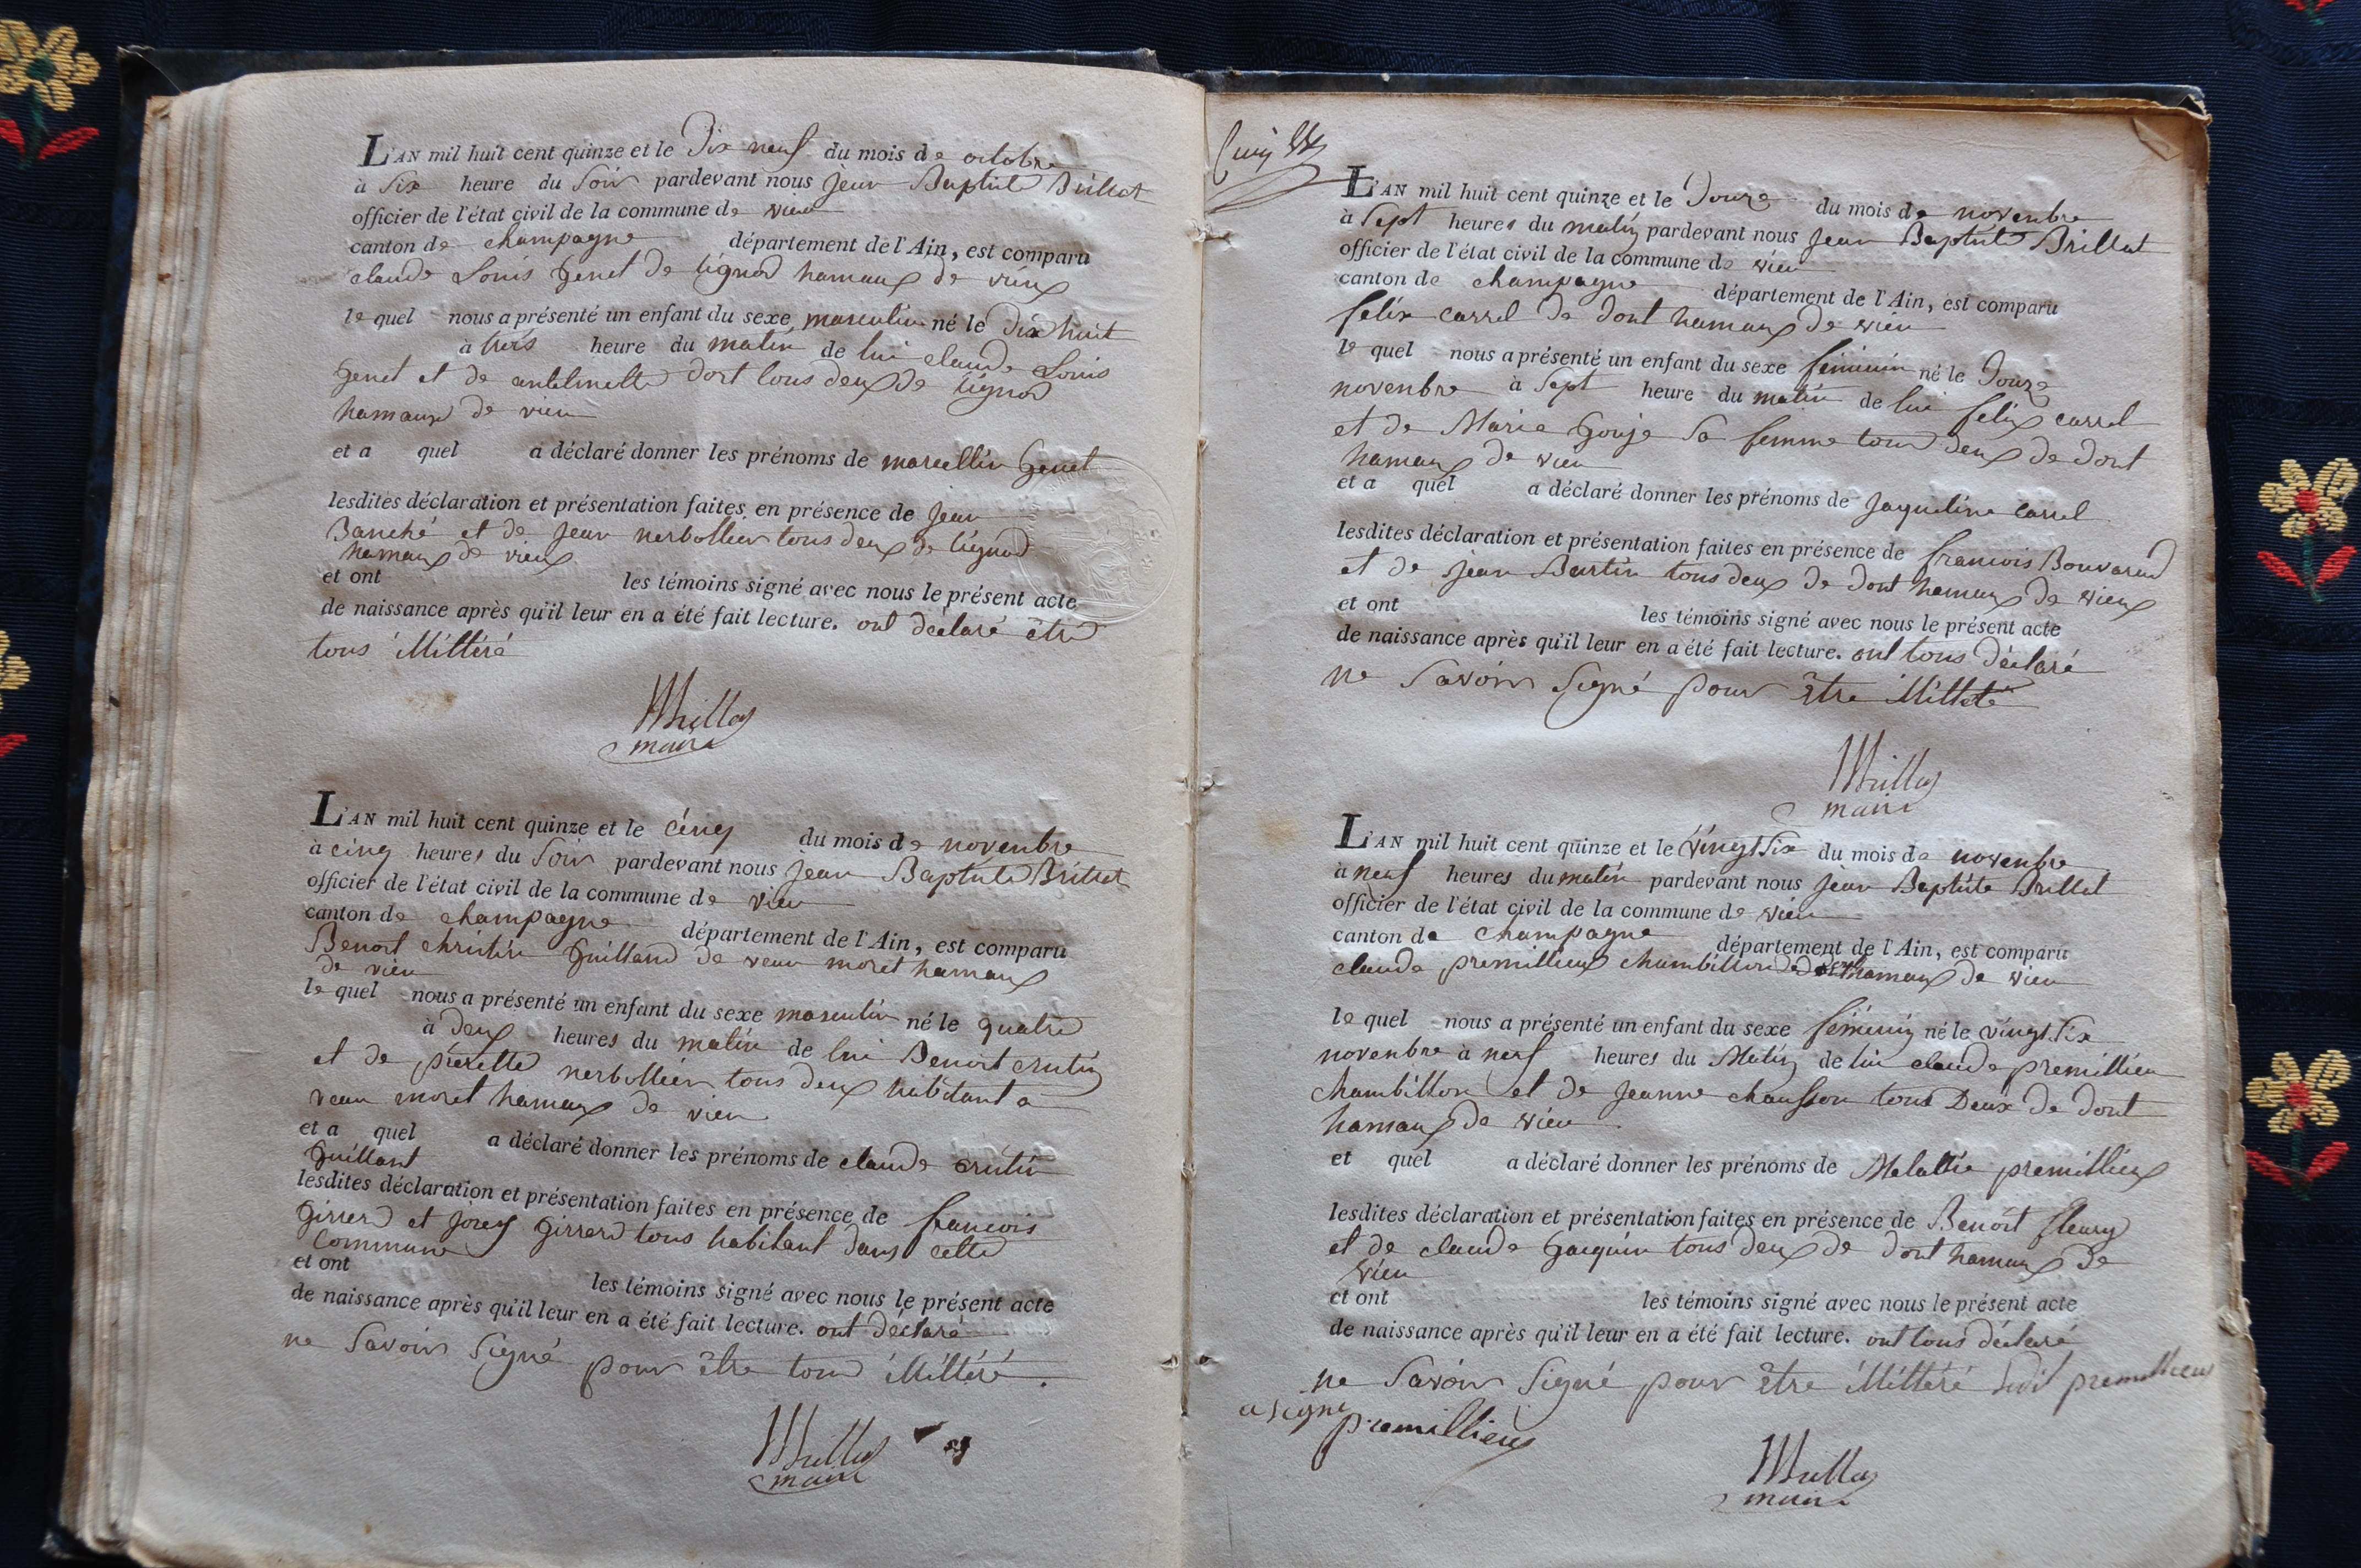 L'AN mil huit cent quinze et le Dix neuf du mois de octobre
à Six heure du Soir pardevant nous jean Baptiste Brillat
officier de l'état civil de la commune de vieu
canton de champagne département de l'Ain, est comparu
claude Louis Genet de lignod hamaux de vieux
le quel nous a présenté un enfant du sexe masculin né le dix huit
à trois heure du matin de lui claude Louis
Genet et de antelmette Dort tous deux de lignod
hamaux de vieu
et a quel a déclaré donner les prénoms de marcellin Genet
lesdites déclaration et présentation faites en présence de jean
Banché et de jean nerbollier tous deux de lignod
hamaux de vieux
et ont les témoins signé avec nous le présent acte
de naissance après qu'il leur en a été fait lecture. ont déclaré être
tous illittéré
Brillat
maire
L'AN mil huit cent quinze et le cinq du mois de novembre
à cinq heures du Soir pardevant nous jean Baptiste Brillat
officier de l'état civil de la commune de vieu
canton de champagne département de l'Ain, est comparu
Benoit christin Guilland de veau moret hamaux
de vieu
le quel nous a présenté un enfant du sexe masculin né le quatre
à deux heures du matin de lui Benoit crutin
et de pierette nerbollier tous deux habitant a
veau moret hamaux de vieu
et a quel a déclaré donner les prénoms de claude crutin
Guillant
lesdites déclaration et présentation faites en présence de francois
Girrerd et Girrerd tous habitant dans cette
commune
et ont les témoins signé avec nous le présent acte
de naissance après qu'il leur en a été fait lecture. ont déclaré
ne Savoir Signé pour être tous illittéré.
Brillat
maire
L'AN mil huit cent quinze et le Douze du mois de novembre
à Sept heures du matin pardevant nous jean Baptiste Brillat
officier de l'état civil de la commune de vieu
canton de champagne département de l'Ain, est comparu
felix carrel de dont hamaux de vieu
le quel nous a présenté un enfant du sexe féminin né le Douze
novembre à Sept heure du matin de lui felix carrel
et de Marie Gouje Sa femme tous deux de dont
hamaux de vieu
et a quel a déclaré donner les prénoms de Jaqueline Carrel
lesdites déclaration et présentation faites en présence de francois Bouvarud
et de jean Burtin tous deux de dont hamaux de vieux
et ont les témoins signé avec nous le présent acte
de naissance après qu'il leur en a été fait lecture. ont tous déclaré
ne Savoir Signé pour être
Brillat
maire
L'AN mil huit cent quinze et le vingt Six du mois de novembre
à neuf heures du matin pardevant nous jean Baptiste Brillat
officier de l'état civil de la commune de vieu
canton de champagne département de l'Ain, est comparu
claude premillieux chambillon hamaux de vieu
le quel nous a présenté un enfant du sexe féminin né le vingt Six
novembre à neuf heures du Matin de lui claude premillieu
chambillon et de Jeanne chausson tous Deux de dont
hamaux de vieu
et quel a déclaré donner les prénoms de Melattie premillieux
lesdites déclaration et présentation faites en présence de Benoit fleury
et de claude Gorquin tous deux de dont hamaux de
vieu
et ont les témoins signé avec nous le présent acte
de naissance après qu'il leur en a été fait lecture. ont tous déclaré
ne Savoir Signé pour être illittéré ledit premillieux
a signé
premillieux
Brillat
maire